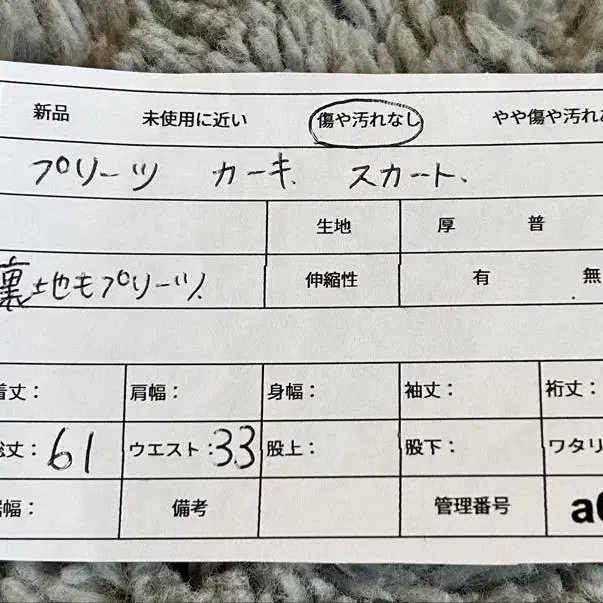 新品 未使用に近い 傷や汚れなし やや傷や汚れ
プリーツ カーキ. スカート.
生地 厚 普
裏地もプリーツ. 伸縮性 有 無
着丈： 肩幅： 身幅： 袖丈： 裄丈：
総丈：61 ウエスト：33 股上： 股下： ワタリ
裾幅： 備考 管理番号 a